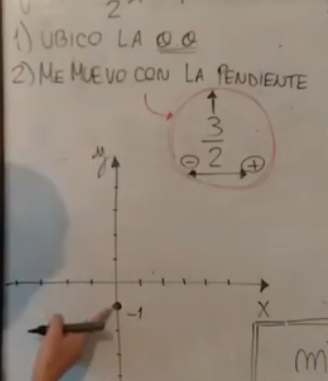 2
1) UBICO LA O.O
2) ME MUEVO CON LA PENDIENTE
3
2
- +
y
x
-1
m